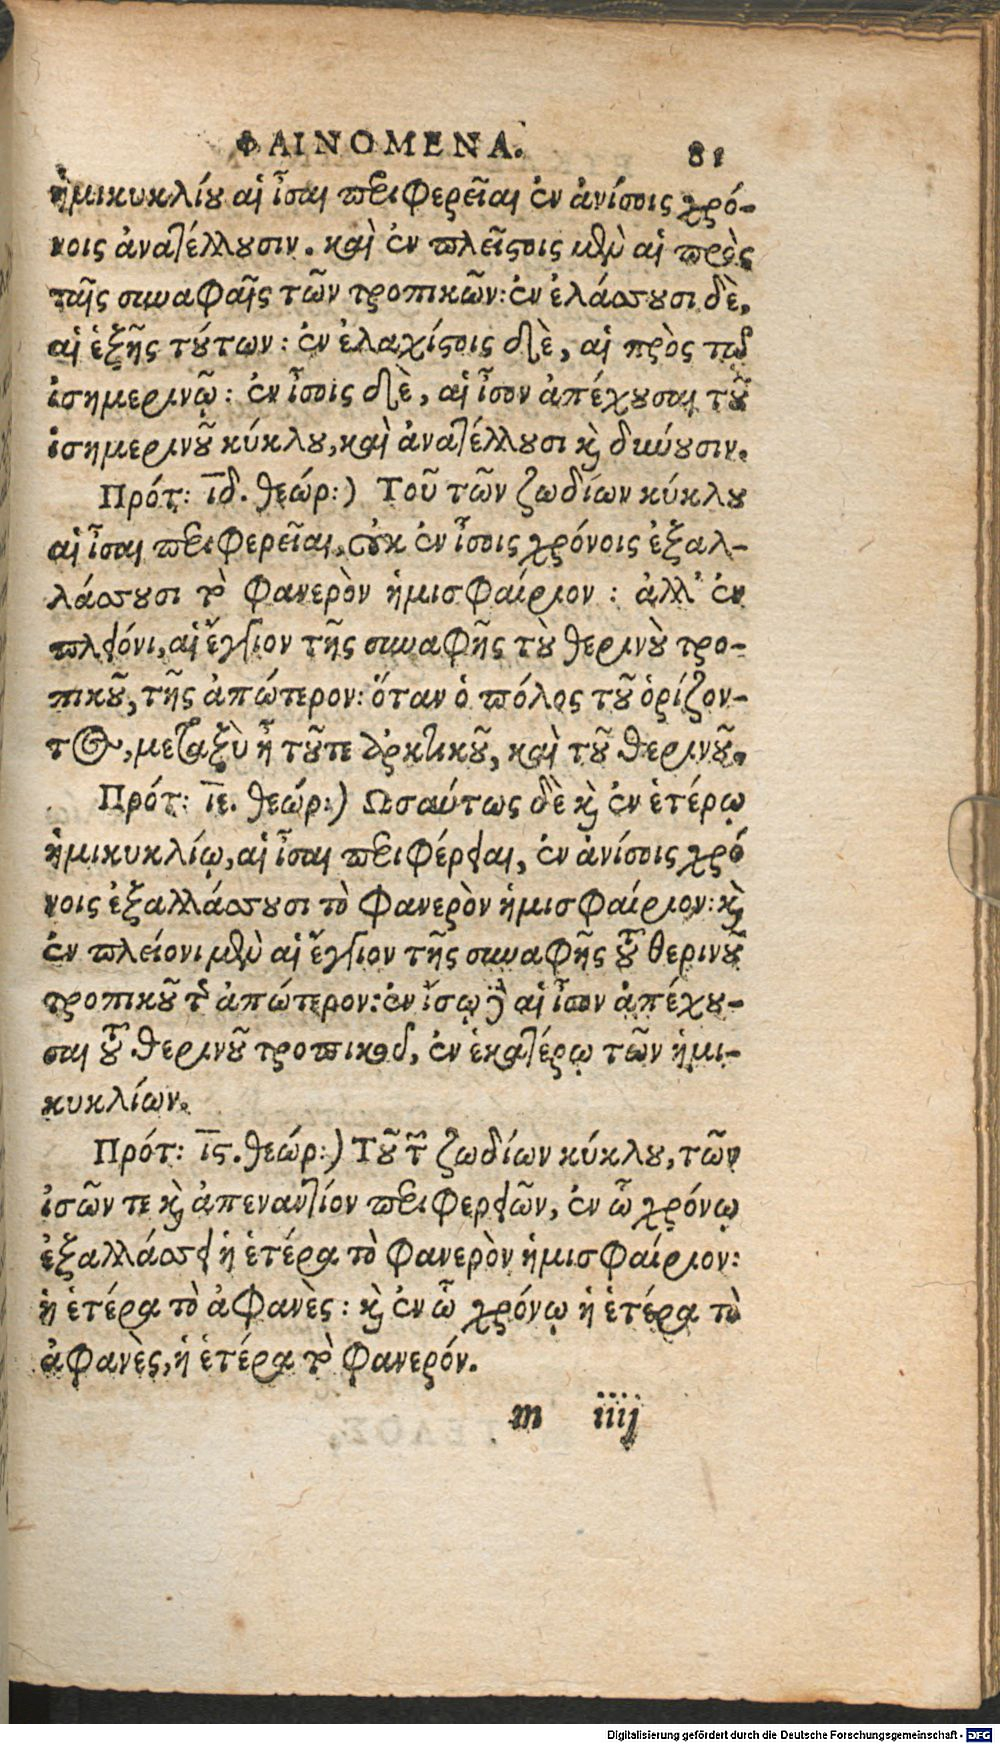 ΦΑΙΝΟΜΕΝΑ. 81
ἡμικυκλίου αἱ ἶσαι περιφερεῖαι ἐν ἀνίσοις χρό-
νοις ἀνατέλλουσιν. καὶ ἐν πλείστοις μὲν αἱ πρὸς
ταῖς συναφαῖς τῶν τροπικῶν: ἐν ἐλάσσουσι δὲ,
αἱ ἑξῆς τούτων: ἐν ἐλαχίστοις δὲ, αἱ πρὸς τῷ
ἰσημερινῷ: ἐν ἴσοις δὲ, αἱ ἶσον ἀπέχουσαι τοῦ
ἰσημερινοῦ κύκλου, καὶ ἀνατέλλουσι καὶ δύνουσιν.
Πρότ: ιδ. θεώρ:) Τοῦ τῶν ζωδίων κύκλου
αἱ ἶσαι περιφερεῖαι, οὐκ ἐν ἴσοις χρόνοις ἐξαλ-
λάσσουσι τὸ φανερὸν ἡμισφαίριον: ἀλλ' ἐν
πλείονι, αἱ ἔγγιον τῆς συναφῆς τοῦ θερινοῦ τρο-
πικοῦ, τῆς ἀπώτερον: ὅταν ὁ πόλος τοῦ ὁρίζον-
τος, μεταξὺ ᾖ τοῦτε ἀρκτικοῦ, καὶ τοῦ θερινοῦ.
Πρότ: ιε. θεώρ:) Ωσαύτως δὲ καὶ ἐν ἑτέρῳ
ἡμικυκλίῳ, αἱ ἶσαι περιφέρειαι, ἐν ἀνίσοις χρό
νοις ἐξαλλάσσουσι τὸ φανερὸν ἡμισφαίριον: καὶ
ἐν πλείονι μὲν αἱ ἔγγιον τῆς συναφῆς τοῦ θερινοῦ
τροπικοῦ τῆς ἀπώτερον: ἐν ἴσῳ δὲ αἱ ἶσον ἀπέχου-
σαι τοῦ θερινοῦ τροπικοῦ, ἐν ἑκατέρῳ τῶν ἡμι-
κυκλίων.
Πρότ: ις. θεώρ:) Τοῦ τῶν ζωδίων κύκλου, τῶν
ἰσῶν τε καὶ ἀπεναντίον περιφερειῶν, ἐν ᾧ χρόνῳ
ἐξαλλάσσει ἡ ἑτέρα τὸ φανερὸν ἡμισφαίριον:
ἡ ἑτέρα τὸ ἀφανὲς: καὶ ἐν ᾧ χρόνῳ ἡ ἑτέρα τὸ
ἀφανὲς, ἡ ἑτέρα τὸ φανερόν.
m iiij
Digitalisierung gefördert durch die Deutsche Forschungsgemeinschaft - DFG